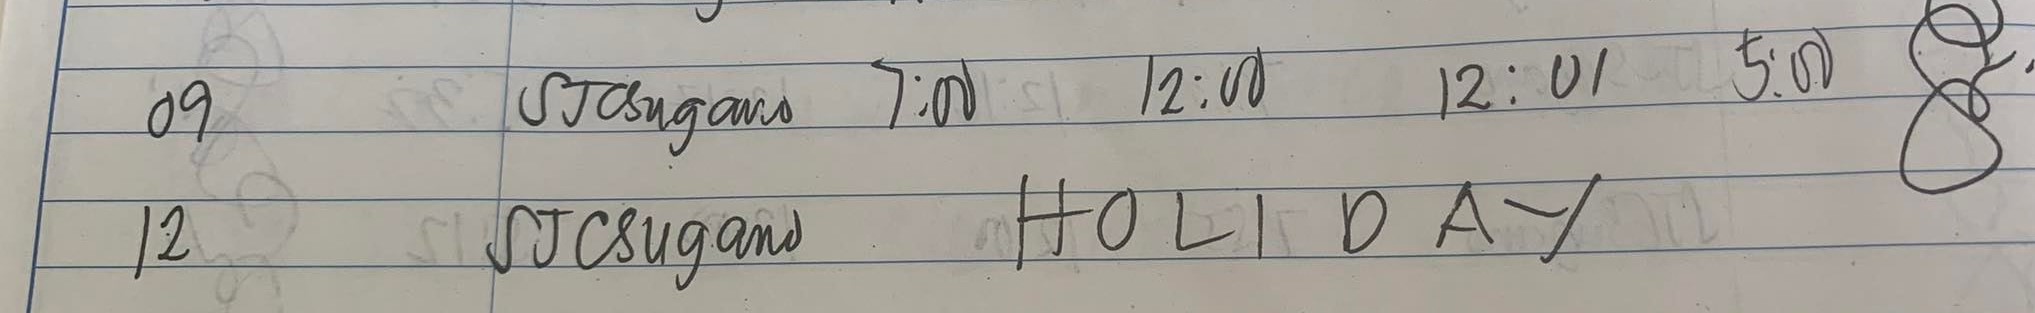 09 SJCSugano 7:00 12:00 12:01 5:00
12 SJCSugano HOLIDAY